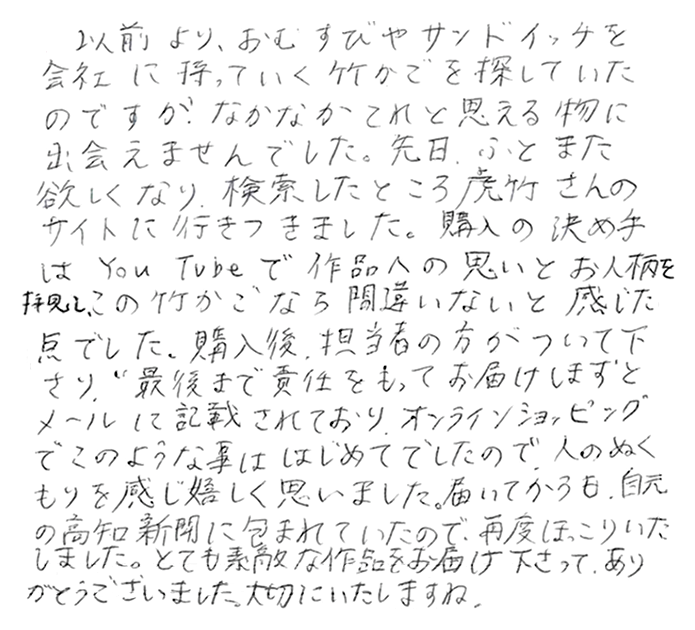 以前より、おむすびやサンドイッチを
会社に持っていく竹かごを探していた
のですが、なかなかこれと思える物に
出会えませんでした。先日、ふとまた
欲しくなり、検索したところ虎竹さんの
サイトに行きつきました。購入の決め手
は You Tubeで作品への思いとお人柄を
拝見し、この竹かごなら間違いないと感じた
点でした。購入後、担当者の方がついて下
さり、“最後まで責任をもってお届けします”と
メールに記載されており、オンラインショッピング
でこのような事ははじめてでしたので、人のぬく
もりを感じ嬉しく思いました。届いてからも、自元
の高知新聞に包まれていたので、再度ほっこりいた
しました。とても素敵な作品をお届け下さって、あり
がとうございました。大切にいたしますね。